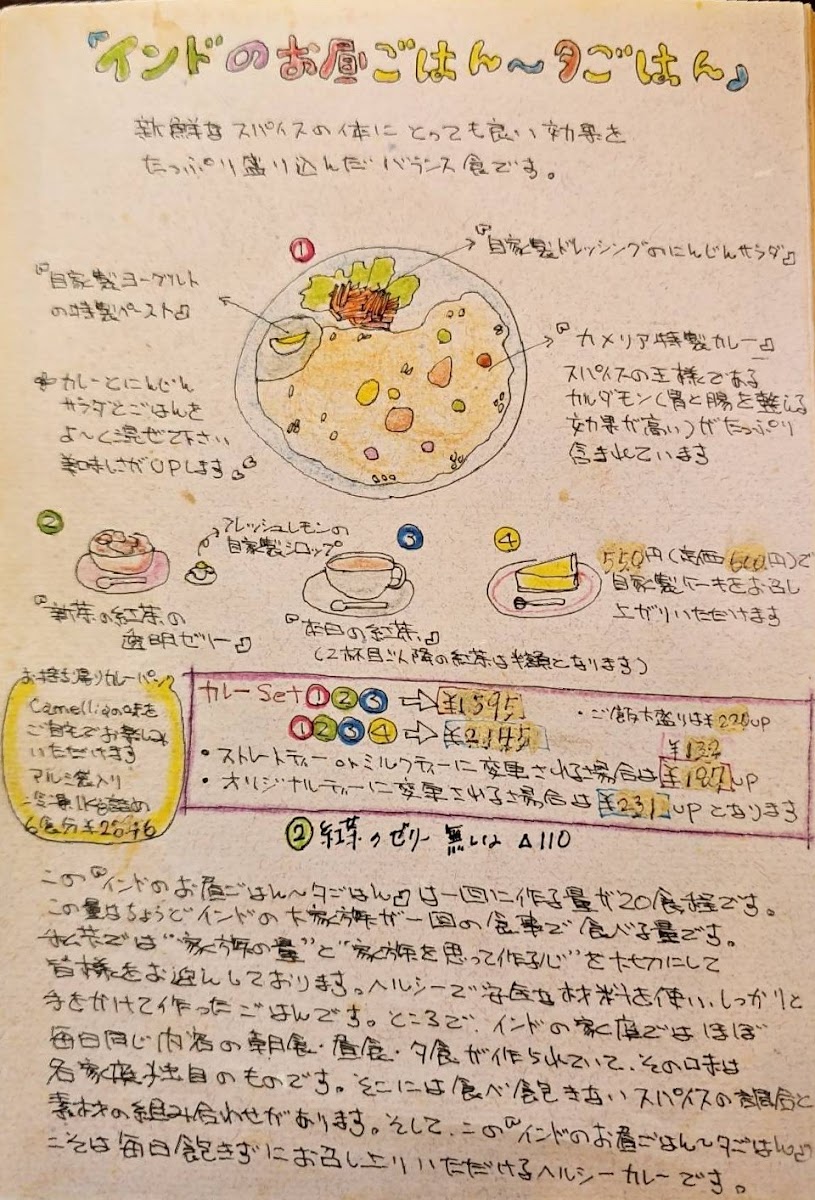 『インドのお昼ごはん～夕ごはん』
新鮮なスパイスの体にとっても良い効果を
たっぷり盛り込んだバランス食です。
①
『自家製ドレッシングのにんじんサラダ』
『自家製ヨーグルト
の特製ペースト』
『カメリア特製カレー』
スパイスの王様である
カルダモン(胃と腸を整える
効果が高い)がたっぷり
含まれています
カレーとにんじん
サラダとごはんを
よ～く混ぜて下さい
美味しさがUPします
②
フレッシュレモンの
自家製シロップ
『新茶の紅茶の
透明ゼリー』
③
『本日の紅茶』
(2杯目以降の紅茶は半額となります)
④
550円(定価600円)で
自家製ケーキをお召し
上がりいただけます
お持ち帰りカレーパック
Camelliaの味を
ご自宅でお楽しみ
いただけます
アルミ袋入り
冷凍1kg詰め
6食分
カレーSet①②③⇒¥1595
・ご飯大盛りは¥220UP
①②③④⇒¥2145
¥132
・ストレートティーorミルクティーに変更される場合は¥187UP
・オリジナルティーに変更される場合は¥231UPとなります
②紅茶のゼリー無しは△110
この『インドのお昼ごはん～夕ごはん』は一回に作る量が20食程です。
この量はちょうどインドの大家族が一回の食事で食べる量です。
私共では"家族の量"と"家族を思って作る心"を大切にして
皆様をお迎えしております。ヘルシーで安全な材料を使い、しっかりと
手をかけて作ったごはんです。ところで、インドの家庭ではほぼ
毎日同じ内容の朝食・昼食・夕食が作られていて、その味は
各家庭独自のものです。そこには食べ飽きないスパイスの調合と
素材の組み合わせがあります。そして、この『インドのお昼ごはん～夕ごはん』
こそは毎日飽きずにお召し上りいただけるヘルシーカレーです。